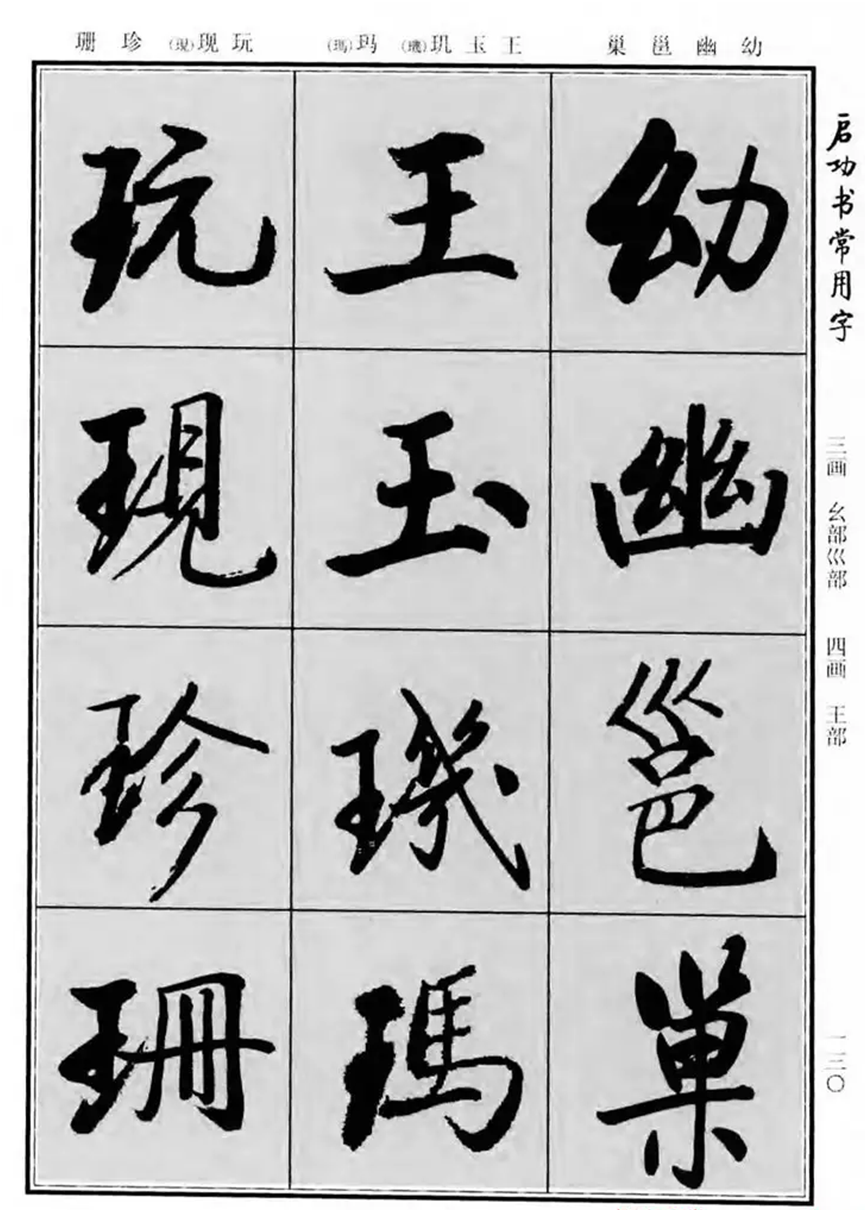 启功书常用字
三画 幺部巛部 四画 王部
一三〇
幼 幽 邕 巢
王 玉 玑(璣) 玛(瑪)
玩 现(現) 珍 珊
幼幽邕巢
王玉璣瑪
玩現珍珊